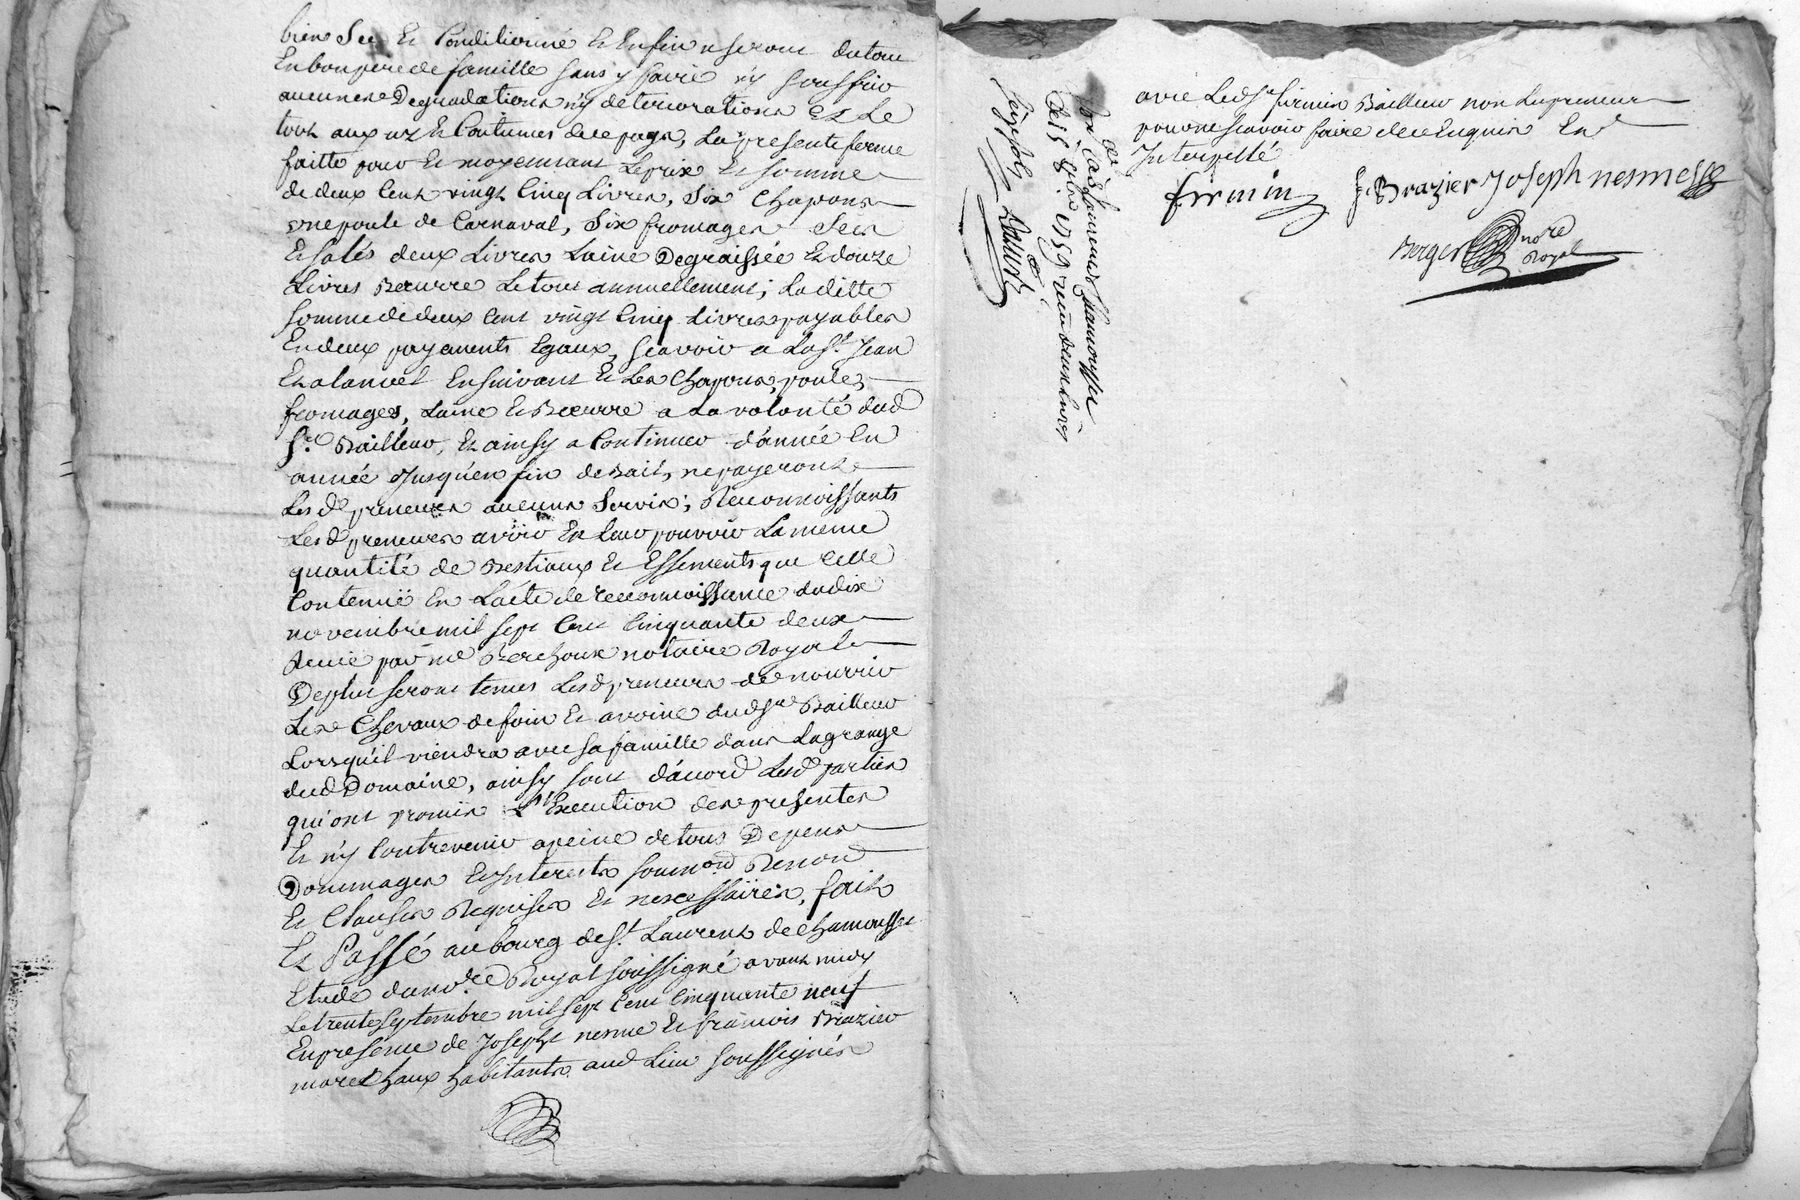 bien Sec Et Conditionné Et Enfin useront dutout
En bon pere de famille sans y faire ny souffrir
aucunes Degradations ny deteriorations Et Le
tout aux uz Et Coutumes dece pays, La presente ferme
faitte pour Et moyennant Leprix Et somme
de deux Cent vingt Cinq Livres, Six Chapons
une poule de Carnaval, Six fromages Secs
Et salés deux Livres Laine Degraissée Et douze
Livres Beurre Le tout annuellement; La ditte
somme de deux Cent vingt Cinq Livres payables
En deux payements Egaux, scavoir a La St. Jean
Et a la noel Ensuivant Et Les Chapons, poule,
fromages, Laine Et Beurre a La volonté dud
Sr. Bailleur, Et ainsy a Continuer d'année En
année Jusqu'en fin de Bail, ne payeront
Les d preneurs aucuns Servis; Reconnoissants
Les d preneurs avoir En Leur pouvoir La meme
quantité de Bestiaux Et Essements que Celle
Contenuë En L'acte de reconnoissance du dix
novembre mil sept Cent Cinquante deux
Receue par me Berchoux notaire Royal
De plus seront tenus Lesd preneurs de nourrir
Les Chevaux de foin Et avoine dud Sr Bailleur
Lorsqu'il viendra avec sa famille dans La grange
dud Domaine, ainsy sont d'acord Lesd parties
qui ont promis L'Execution des presentes
Et n'y Contrevenir a peine de tous Depens
Dommages Et Interests soumon Renon
Et Clauses Requises Et necessaires, fait
Et Passé au bourg de St. Laurent de Chamousset
Etude du nore Royal soussigné avant midy
Le trente septembre mil sept Cent Cinquante neuf
En presence de Joseph nesme Et francois Brazier
marechaux habitants aud Lieu soussignés
avec Led Sr firmin Bailleur non Les preneurs
pour ne scavoir faire de ce Enquis Et
Interpellé
firmin F. Brazier Joseph nesme
Berger nore
Royal